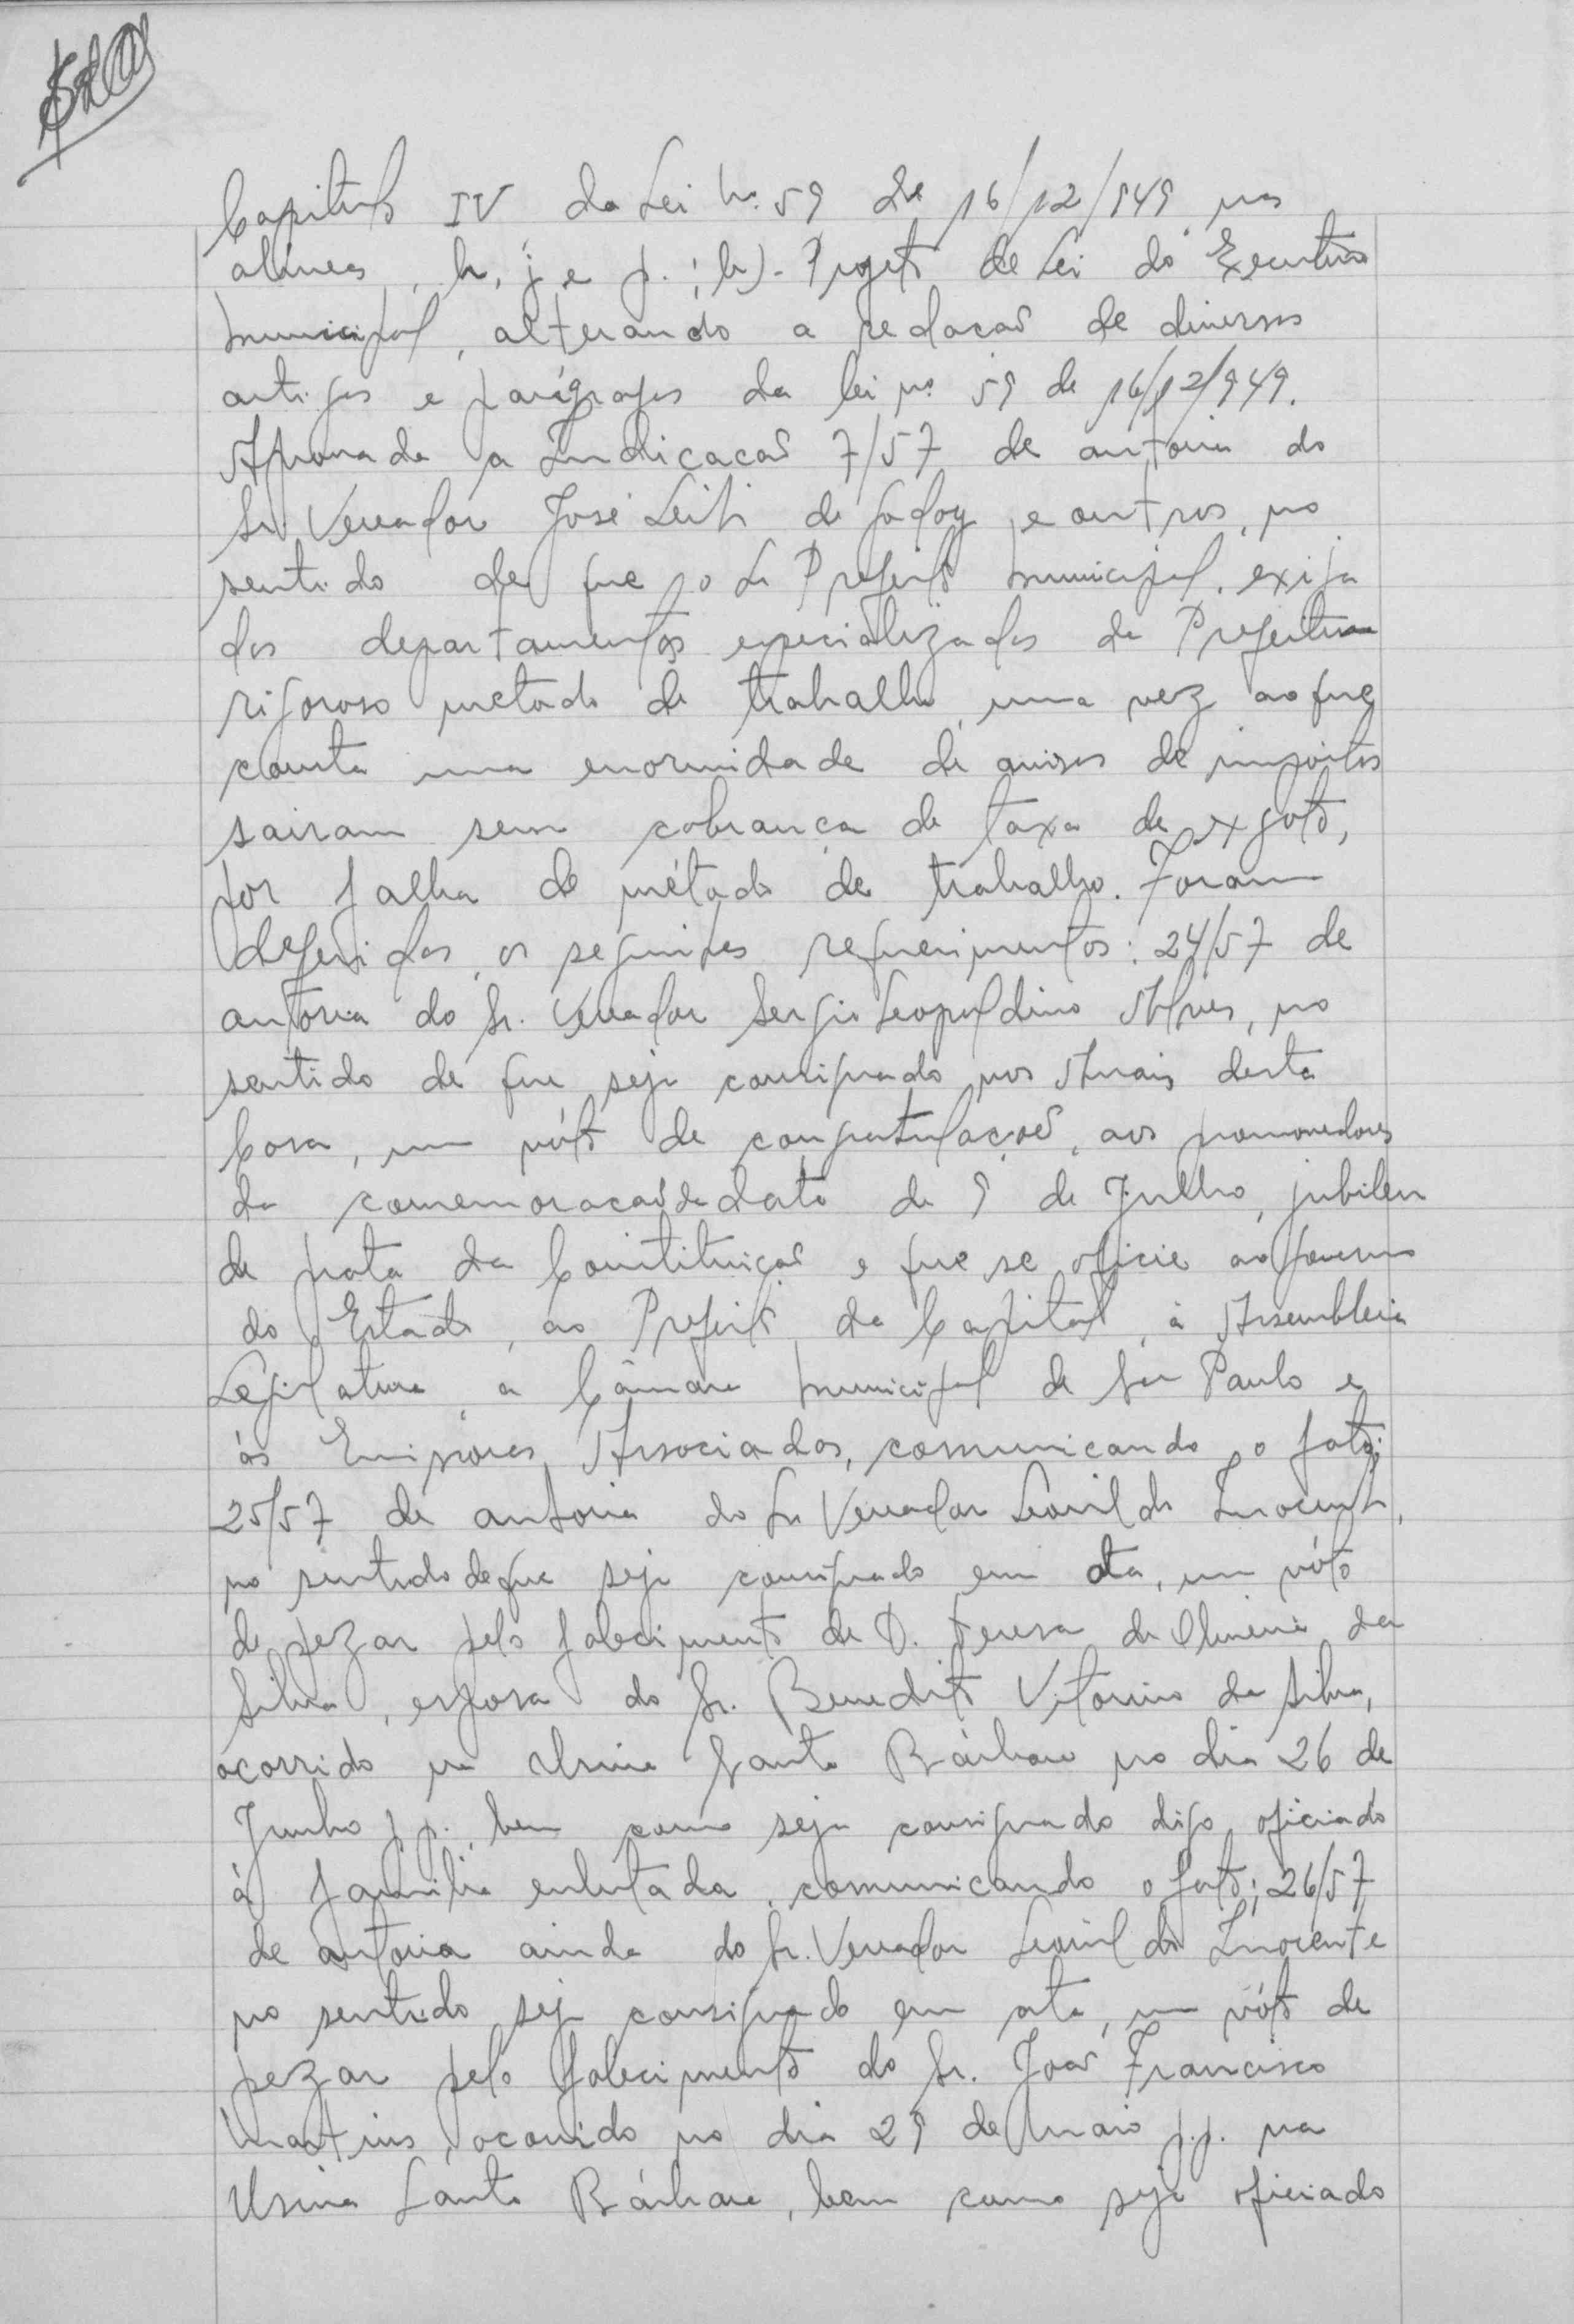 Capitulo IV da Lei nº 59 de 16/12/949 nas
alineas, h, j e p.; b)- Projeto de Lei do Executivo
Municipal, alterando a redacaõ de diversos
artigos e parágrafos da lei nº 59 de 16/12/949.
Aprovada a Indicacaõ 7/57 de autoria do
Sr. Vereador José Leite de Godoy e outros, no
sentido de que o Sr Prefeito Municipal, exija
dos departamentos especializados da Prefeitura
rigoroso metodo de trabalho, uma vez ao que
consta uma enormidade de avisos de impostos
sairam sem cobrança de taxa de exgoto,
por falha de método de trabalho. Foram
deferidos, os seguintes requerimentos: 24/57 de
autoria do Sr. Vereador Sergio Leopoldino Alves, no
sentido de que seja consignado nos Anais desta
Casa, um vóto de congratulaçoẽ, aos promovedores
da comemoracaõ da data de 9 de Julho, jubileu
de prata da Constituiçaõ e que se oficie ao Governo
do Estado, ao Prefeito da Capital, à Assembleia
Legislativa, a Câmara Municipal de São Paulo e
ás Emissoras Associadas, comunicando o fato;
25/57 de autoria do Sr Vereador Leovildo Inocente,
no sentido de que seja consignado em ata, um vóto
de pezar pelo falecimento de D. Teresa de Oliveira da
Silva, esposa do Sr. Benedito Vitorino da Silva,
ocorrido na Usina Santa Bárbara no dia 26 de
Junho p.p., bem como seja consignado digo, oficiado
á familia enlutada, comunicando o fato; 26/57
de autoria ainda do Sr. Vereador Leovildo Inocente
no sentido seja consignado em ata, um vóto de
pezar pelo falecimento do Sr. Joaõ Francisco
Martins, ocorrido no dia 29 de Maio p.p. na
Usina Santa Bárbara, bem como seja oficiado